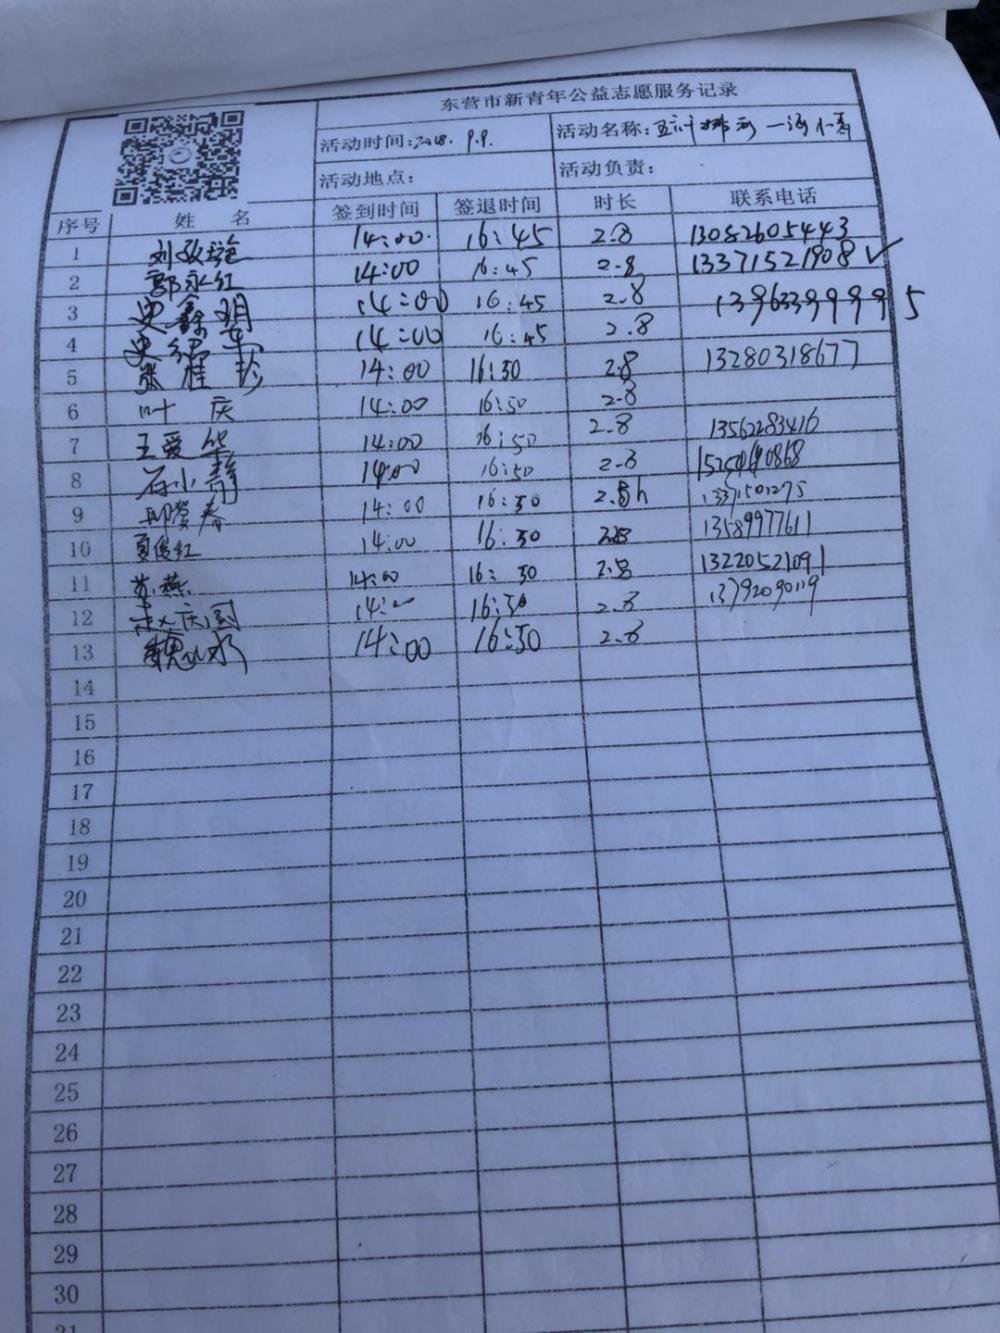 东营市新青年公益志愿服务记录
活动时间:2018. 9.9. 活动名称:
活动地点: 活动负责:
序号 姓 名 签到时间 签退时间 时长 联系电话
1 14:00 16:45 2.8 13082605443
2 郭永红 14:00 16:45 2.8 13371521908 ✓
3 史鑫玥 14:00 16:45 2.8 13963399995
4 14:00 16:45 2.8
5 张桂珍 14:00 16:30 2.8 13280318677
6 叶庆 14:00 16:50 2.8
7 王爱华 14:00 16:50 2.8 13562283416
8 石小静 14:00 16:50 2.8
9 14:00 16:50 2.8h 13371501275
10 夏俊红 14:00 16:50 2.8 13589977611
11 苏燕 14:00 16:50 2.8 13220521091
12 14:00 16:50 2.8 13792090119
13 14:00 16:50 2.8
14
15
16
17
18
19
20
21
22
23
24
25
26
27
28
29
30
31